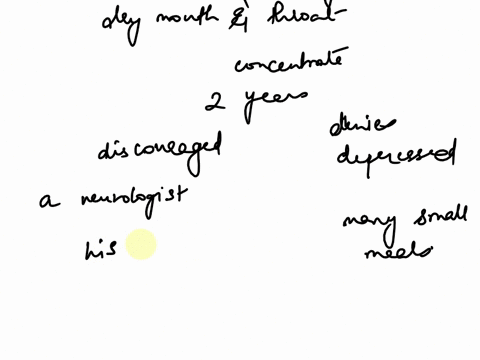 dry mouth & throat
concentrate
2 years
discouraged
denies
depressed
a neurologist
many small
meals
his